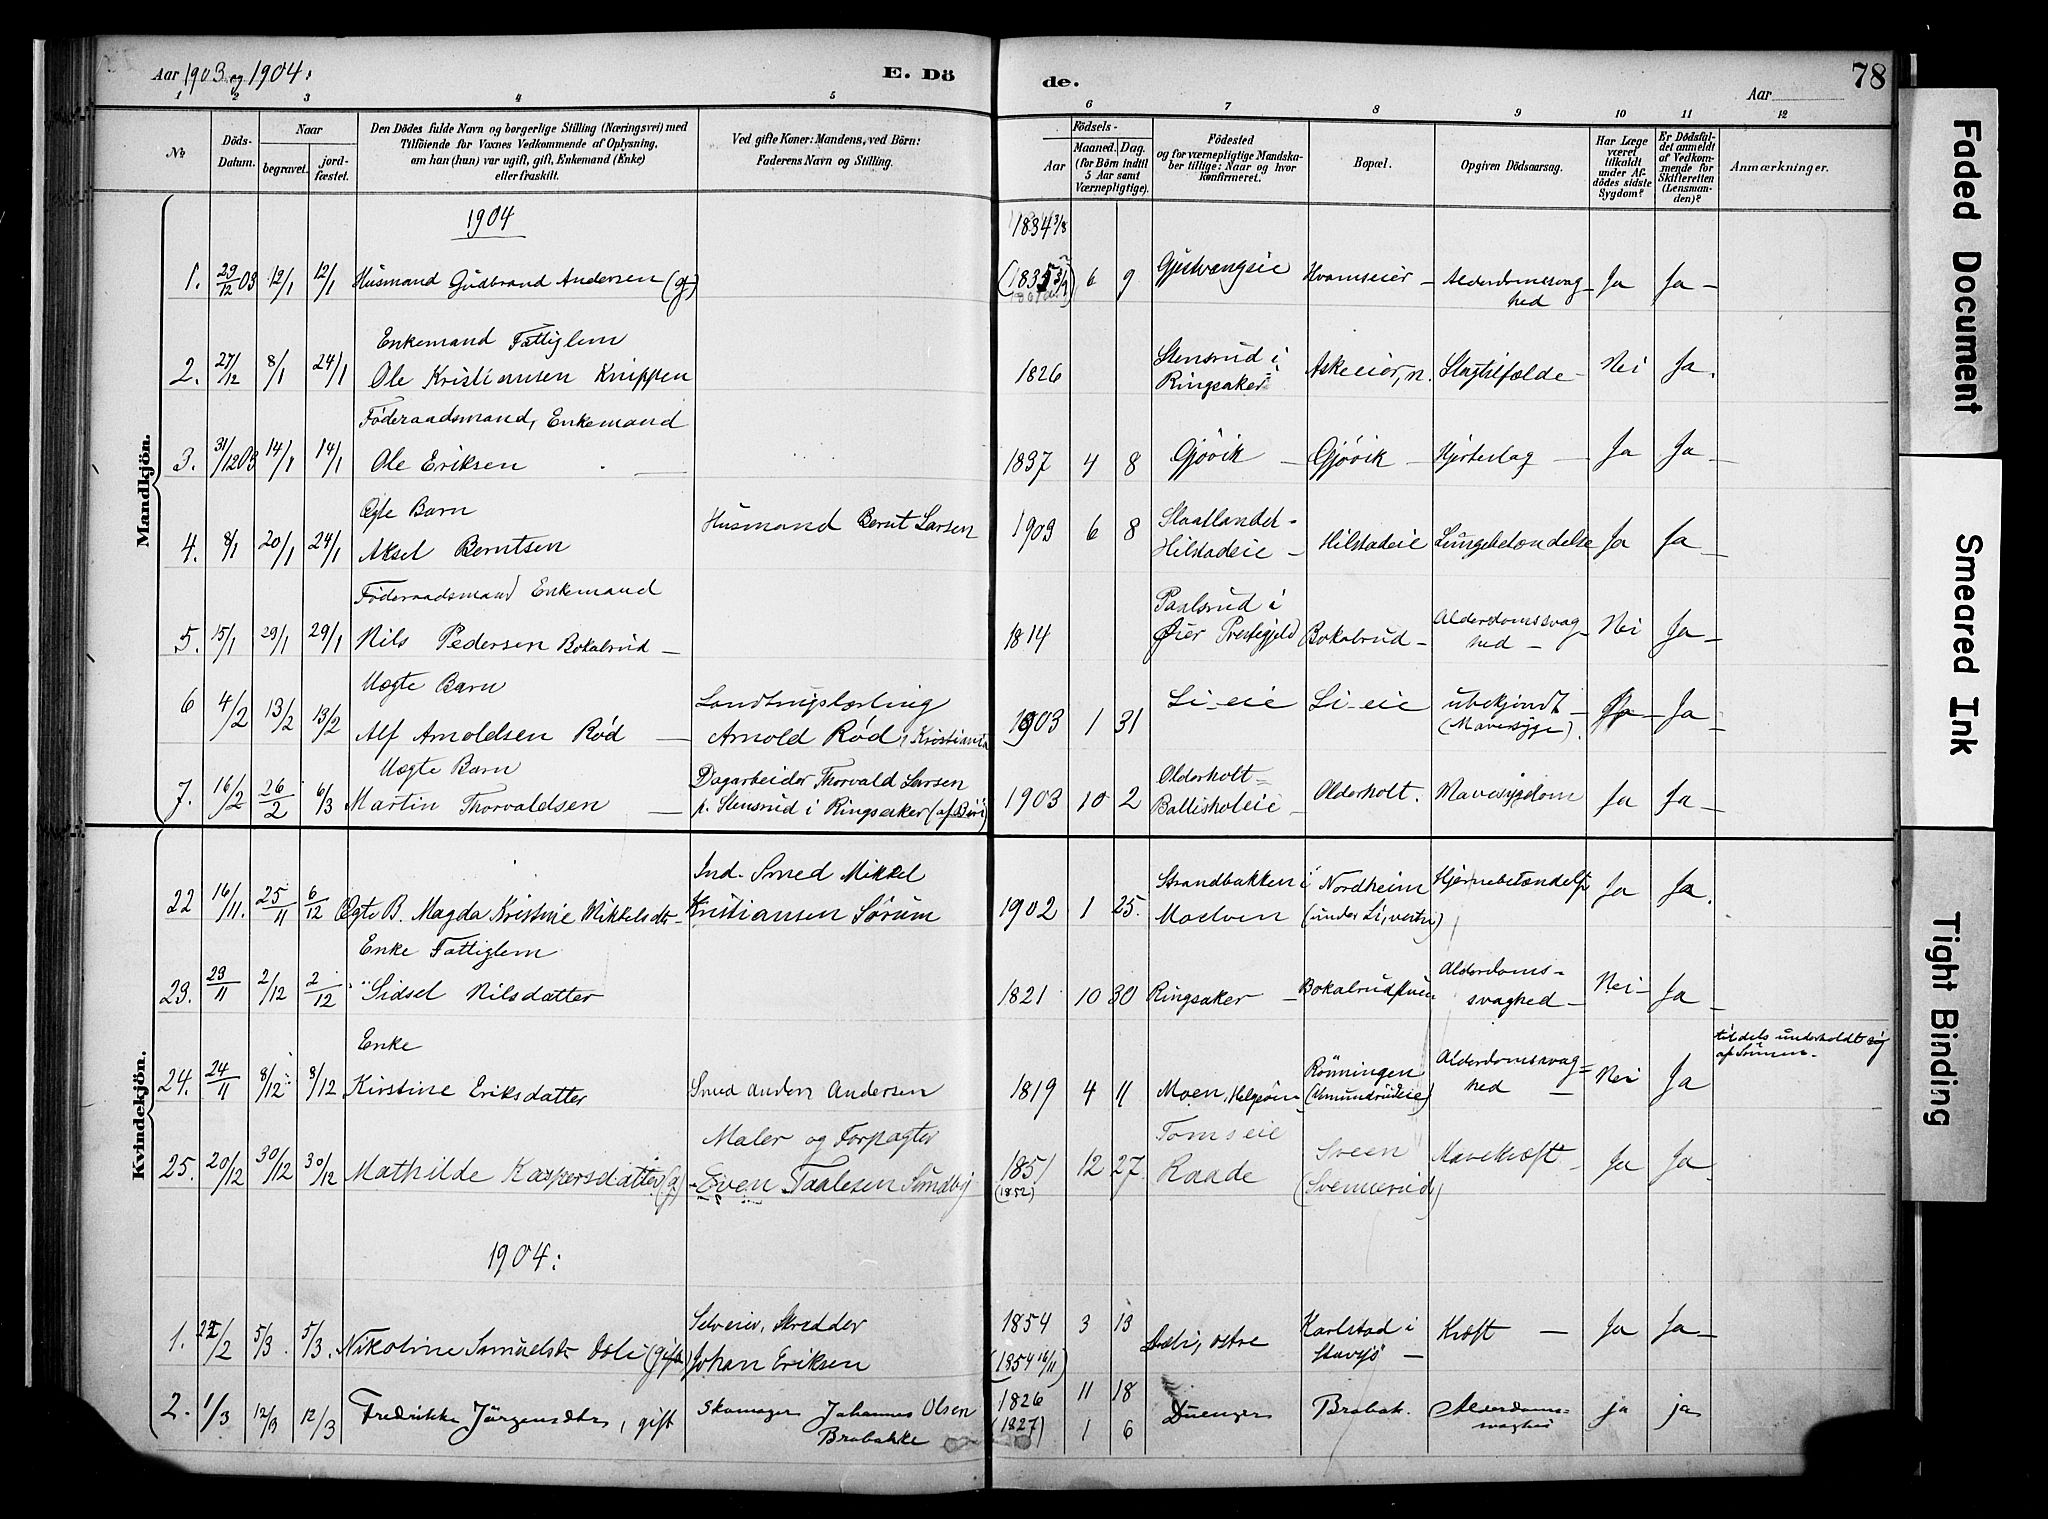 Aar 1903 og 1904:
E. Dö
de.
Aar
78
1 2 3 4 5 6 7 8 9 10 11 12
No
Döds-Datum.
Naar
begravet.
jord-fæstet.
Den Dödes fulde Navn og borgerlige Stilling (Næringsvei) med
Tilföiende for Voxnes Vedkommende af Oplysning,
om han (hun) var ugift, gift, Enkemand (Enke)
eller fraskilt.
Ved gifte Koner: Mandens, ved Börn:
Faderens Navn og Stilling.
Födsels-
Aar
Maaned. (for Börn indtil 5 Aar samt Værnepligtige).
Dag.
Födested
og for værnepligtige Mandska-
ber tillige: Naar og hvor
konfirmeret.
Bopæl.
Opgiven Dödsaarsag.
Har Læge været tilkaldt under Af-dödes sidste Sygdom?
Er Dödsfal-det anmeldt af Vedkom-mende for Skifteretten (Lensman-den)?
Anmærkninger.
Mandkjön.
1904
1834 3/8
1. 29/12 03 12/1 12/1 Husmand Gudbrand Andersen (g) (1835 3/9) 6 9 Gjestvangseie Kvamseier – Alderdomssvag-
hed Ja Ja –
Enkemand Fattiglem
2. 27/12 8/1 24/1 Ole Kristiansen Knippen 1826 Stensrud i
Ringsaker Askeeier, n. Slagtilfælde – Nei Ja.
Föderaadsmand, Enkemand
3. 31/12 03 14/1 14/1 Ole Eriksen 1837 4 8 Gjövik – Gjövik – Hjerteslag – Ja Ja –
Ægte Barn
4. 8/1 20/1 24/1 Aksel Berntsen Husmand Bernt Larsen 1903 6 8 Slaatlandet-
Hilstadeie – Hilstadeie Lungebetændelse Ja Ja –
Föderaadsmand Enkemand
5. 15/1 29/1 29/1 Nils Pedersen Bokalrud – 1814 Paalsrud i
Öier Prestegjeld Bokalrud – Alderdomssvag-
hed – Nei Ja –
Uægte Barn
6 4/2 13/2 13/2 Alf Arnoldsen Rød – Landbrugslærling
Arnold Rød, Kristiania 1903 1 31 Li-eie Li-eie ubekjendt –
(Mavesyge). Ja – Ja –
Uægte Barn
7. 16/2 26/2 6/3 Martin Thorvaldsen – Dagarbeider Thorvald Larsen
p. Stensrud i Ringsaker (af Biri) 1903 10 2 Olderholt-
Ballishøleie – Olderholt. Mavesygdom Ja Ja –
Kvindekjön.
22 16/11. 25/11 6/12 Ægte B. Magda Kristine Mikkelsdtr – Ind. Smed Mikkel
Kristiansen Sørum 1902 1 25. Strandbakken i
Moelven Nordheim
(under Li, vestre) Hjernebetændelse Ja Ja.
Enke Fattiglem
23. 23/11 2/12 2/12 Sidsel Nilsdatter 1821 10 30 Ringsaker – Alderdoms-
svaghed – Nei – Ja –
Enke
24. 24/11 8/12 8/12 Kirstine Eriksdatter Smed Anders Andersen 1819 4 11 Moen, Helgøen Rönningen
(Amundrudeie) Alderdomssvag-
hed – Nei Ja tildels underholdt sig
af Sönnen –
25. 20/12 30/12 30/12 Mathilde Kaspersdatter (g) Maler og Forpagter
Even Taalesen Sundby 1851
(1852) 12 27 Tomseie
Raade Sveen
(Svennerud) Mavekræft – Ja Ja –
1904:
1. 22/2 5/3. 5/3. Nikoline Samuelsdtr Dæli (gift) Selveier, Skredder
Johan Eriksen 1854
(1854 16/11) 3 13 Dæli, østre Karlstad i
Stavsjö – Kræft – Ja Ja –
2. 1/3 12/3 12/3 Fredrikke Jörgensdtr, gift Skomager Johannes Olsen
Brobakke 1826
(1827) 11 18
1 6 Duenger Brobak. Alderdoms-
svaghed ja ja
Faded Document
Smeared Ink
Tight Binding